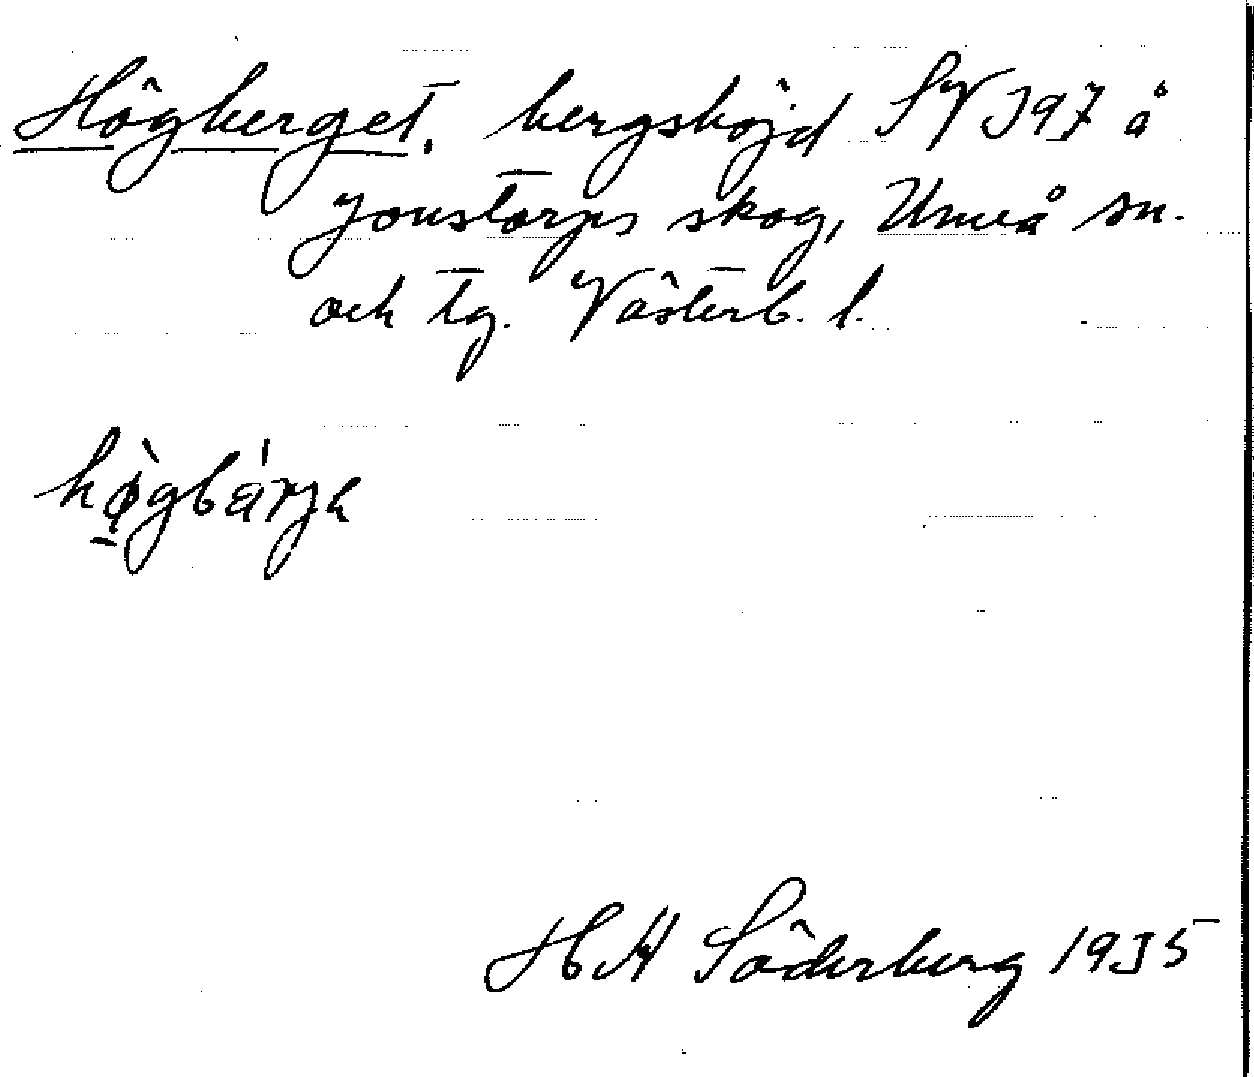 Högberget, bergshöjd SV 397 å
Jonstorps skog, Umeå sn.
och tg. Västerb. l.
H A Söderberg 1935